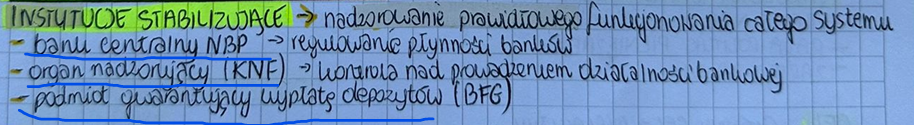 INSTYTUCJE STABILIZUJĄCE → nadzorowanie prawidłowego funkcjonowania całego systemu
- bank centralny NBP → regulowanie płynności banków
- organ nadzorujący (KNF) → kontrola nad prowadzeniem działalności bankowej
- podmiot gwarantujący wypłatę depozytów (BFG)